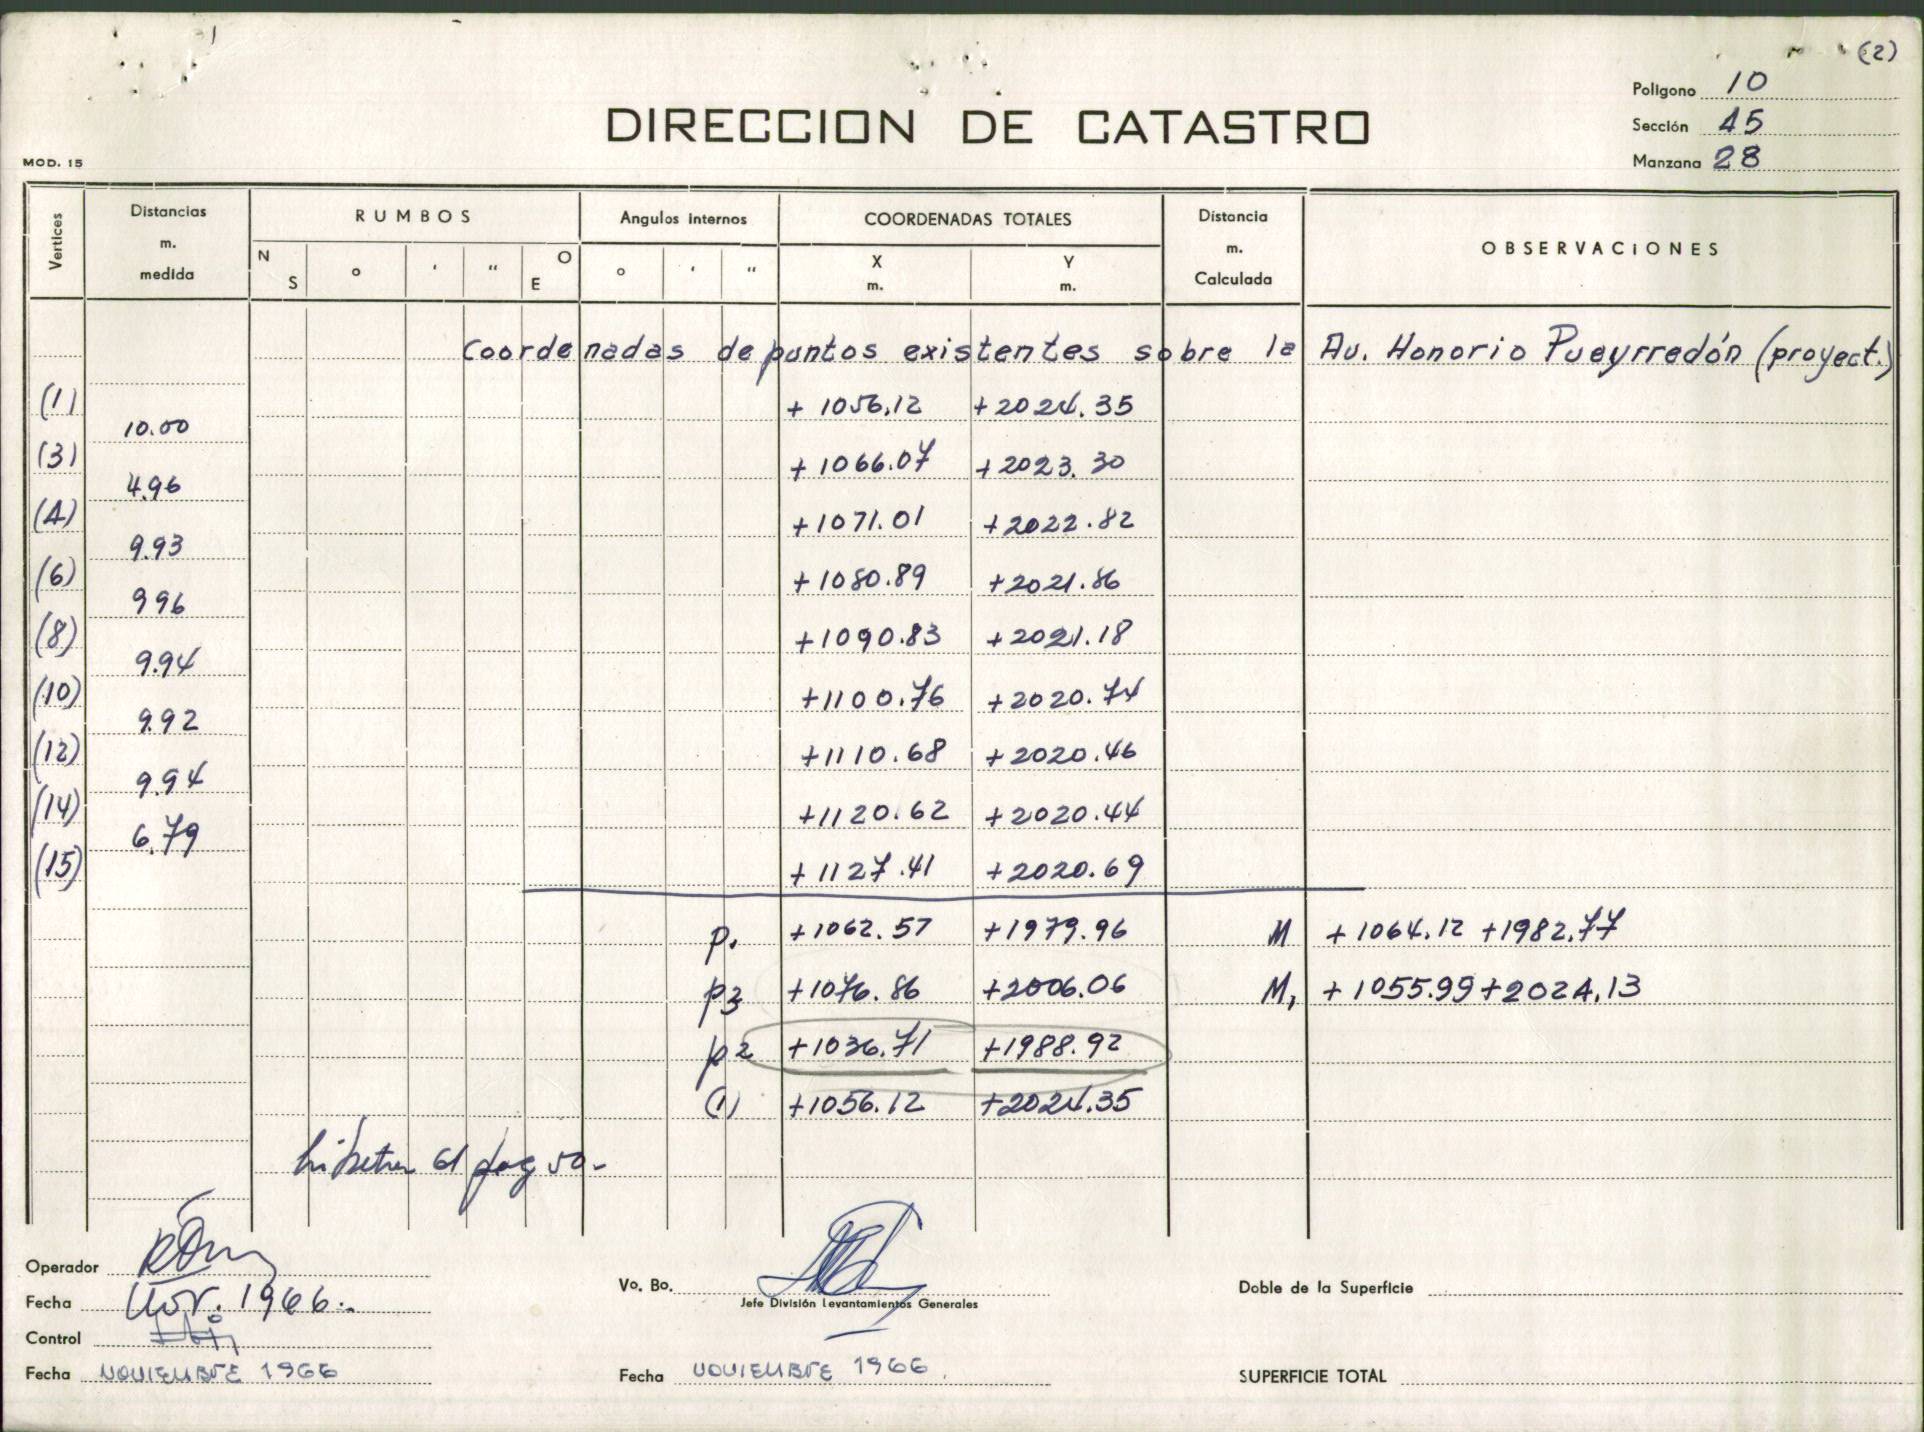 (2)
Polígono 10
DIRECCION DE CATASTRO
Sección 45
Manzana 28
MOD. 15
Vertices Distancias m. medida RUMBOS Angulos internos COORDENADAS TOTALES Distancia m. Calculada OBSERVACIONES
N S o ' " O E o ' " X m. Y m.
Coordenadas de puntos existentes sobre la Av. Honorio Pueyrredón (proyect.)
(1) + 1056.12 +2024.35
10.00
(3) + 1066.07 +2023.30
4.96
(4) +1071.01 +2022.82
9.93
(6) +1080.89 +2021.86
996
(8) +1090.83 +2021.18
9.94
(10) +1100.76 +2020.74
9.92
(12) +1110.68 +2020.46
9.94
(14) +1120.62 +2020.44
6.79
(15) +1127.41 +2020.69
p. +1062.57 +1979.96 M +1064.12 +1982.77
p3 +1076.86 +2006.06 M, +1055.99 +2024.13
p2 +1036.71 +1988.92
(1) +1056.12 +2024.35
Operador
Vo. Bo.
Jefe División Levantamientos Generales
Doble de la Superficie
Fecha Nov. 1966.-
Control
Fecha NOVIEMBRE 1966
Fecha NOVIEMBRE 1966.
SUPERFICIE TOTAL